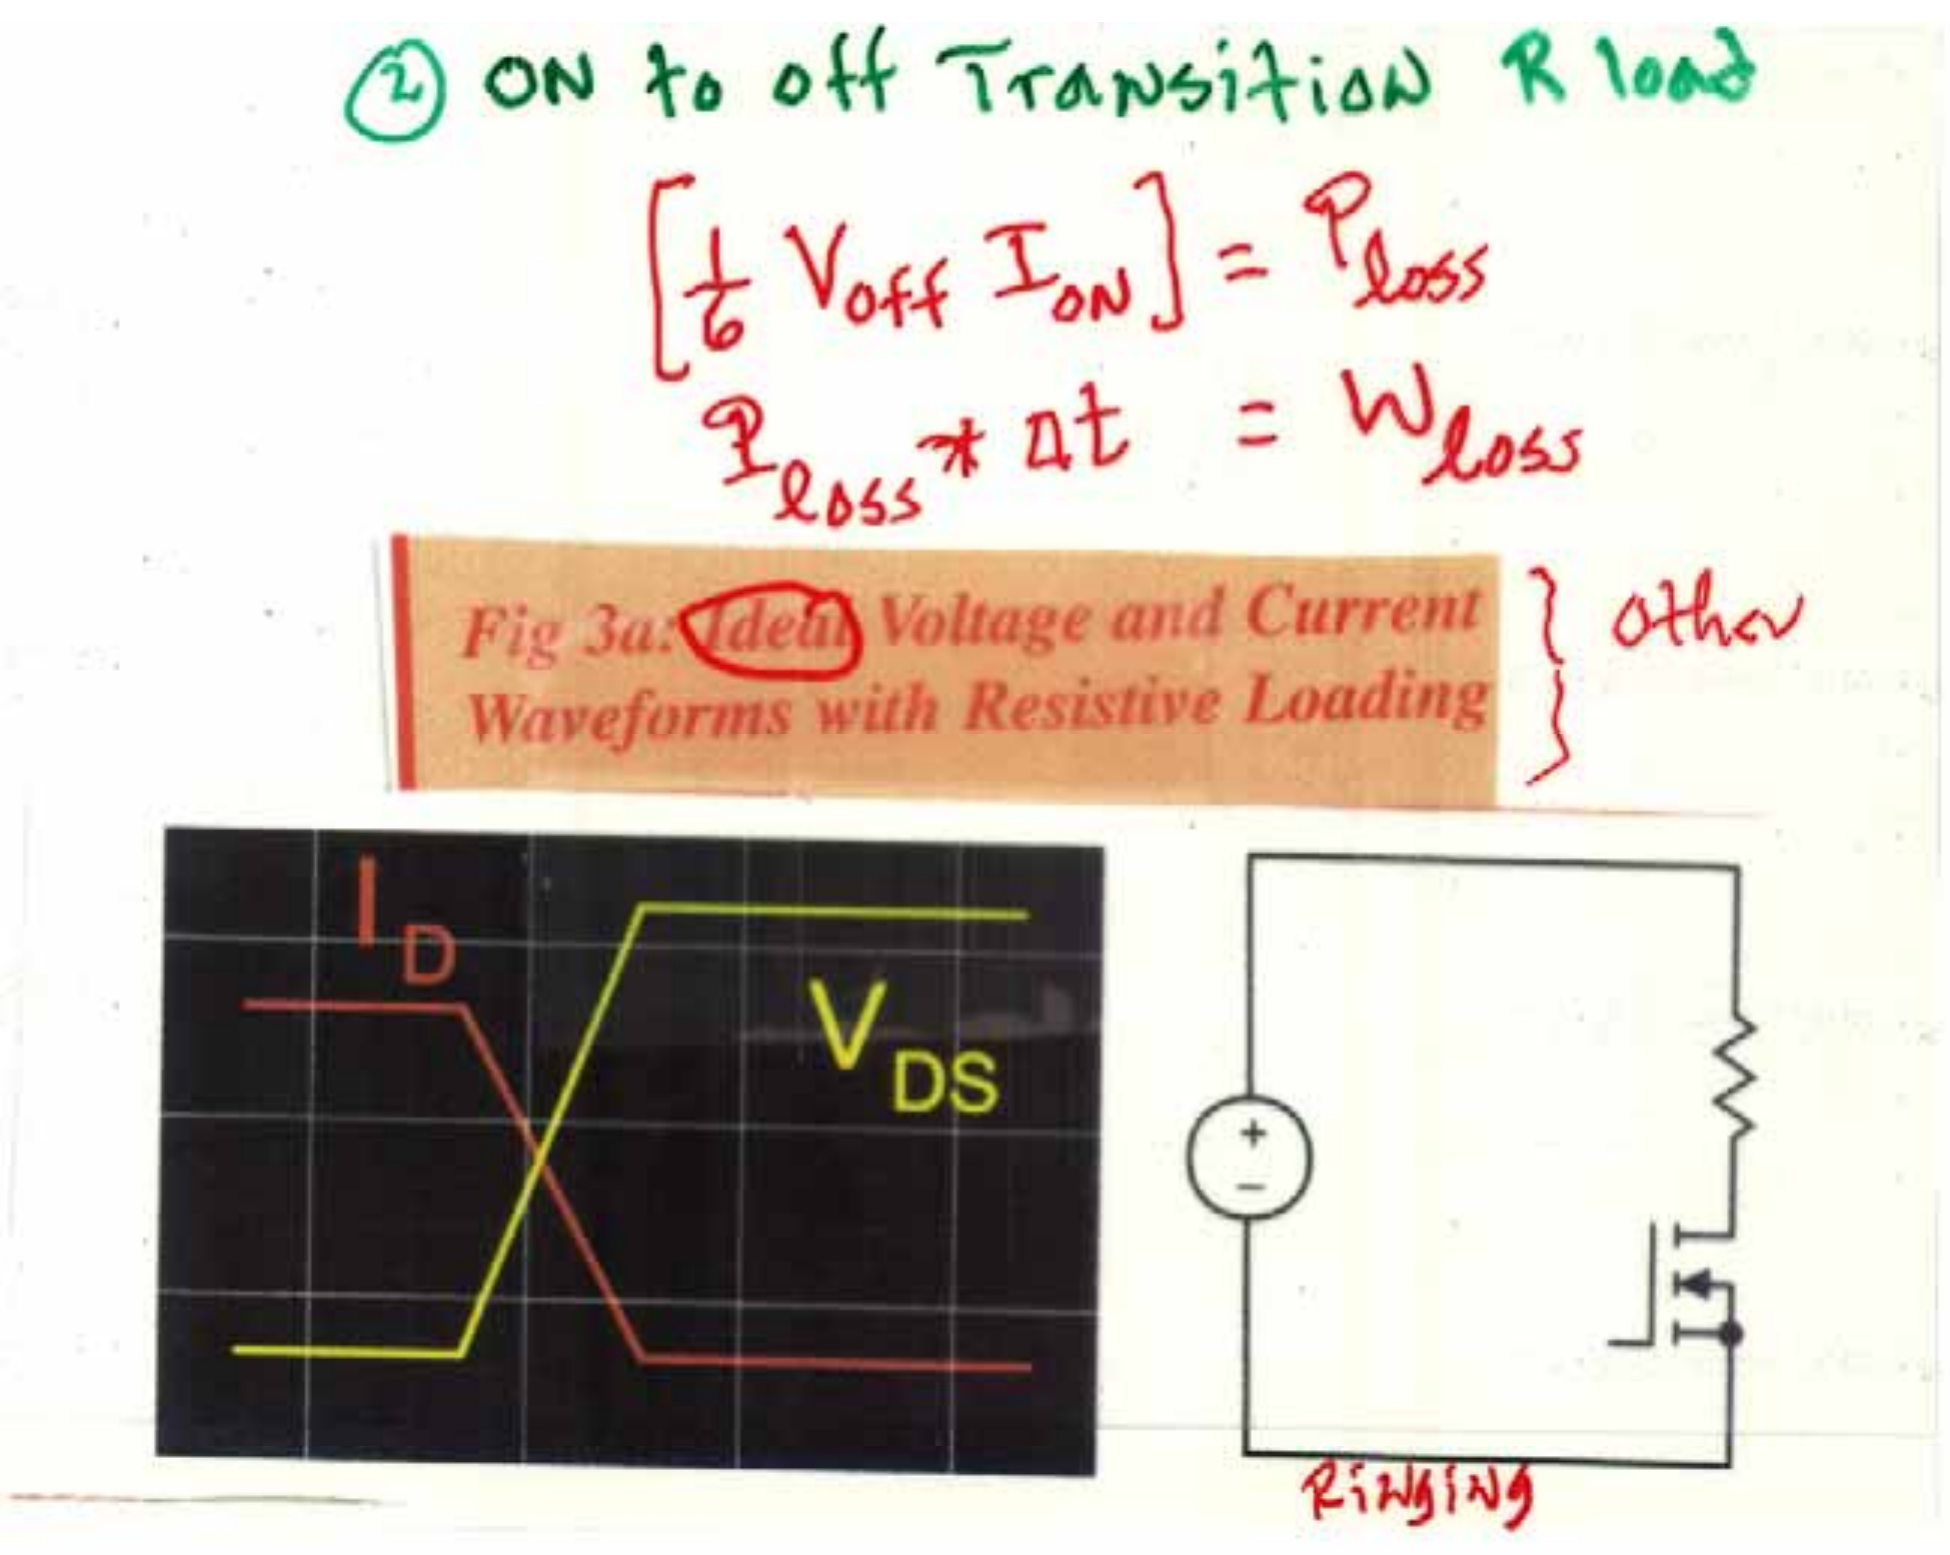 ② ON to off Transition R load
[1/6 Voff ION] = Ploss
Ploss * Δt = Wloss
Fig 3a: Ideal Voltage and Current
Waveforms with Resistive Loading
other
ID
VDS
+
−
Ringing